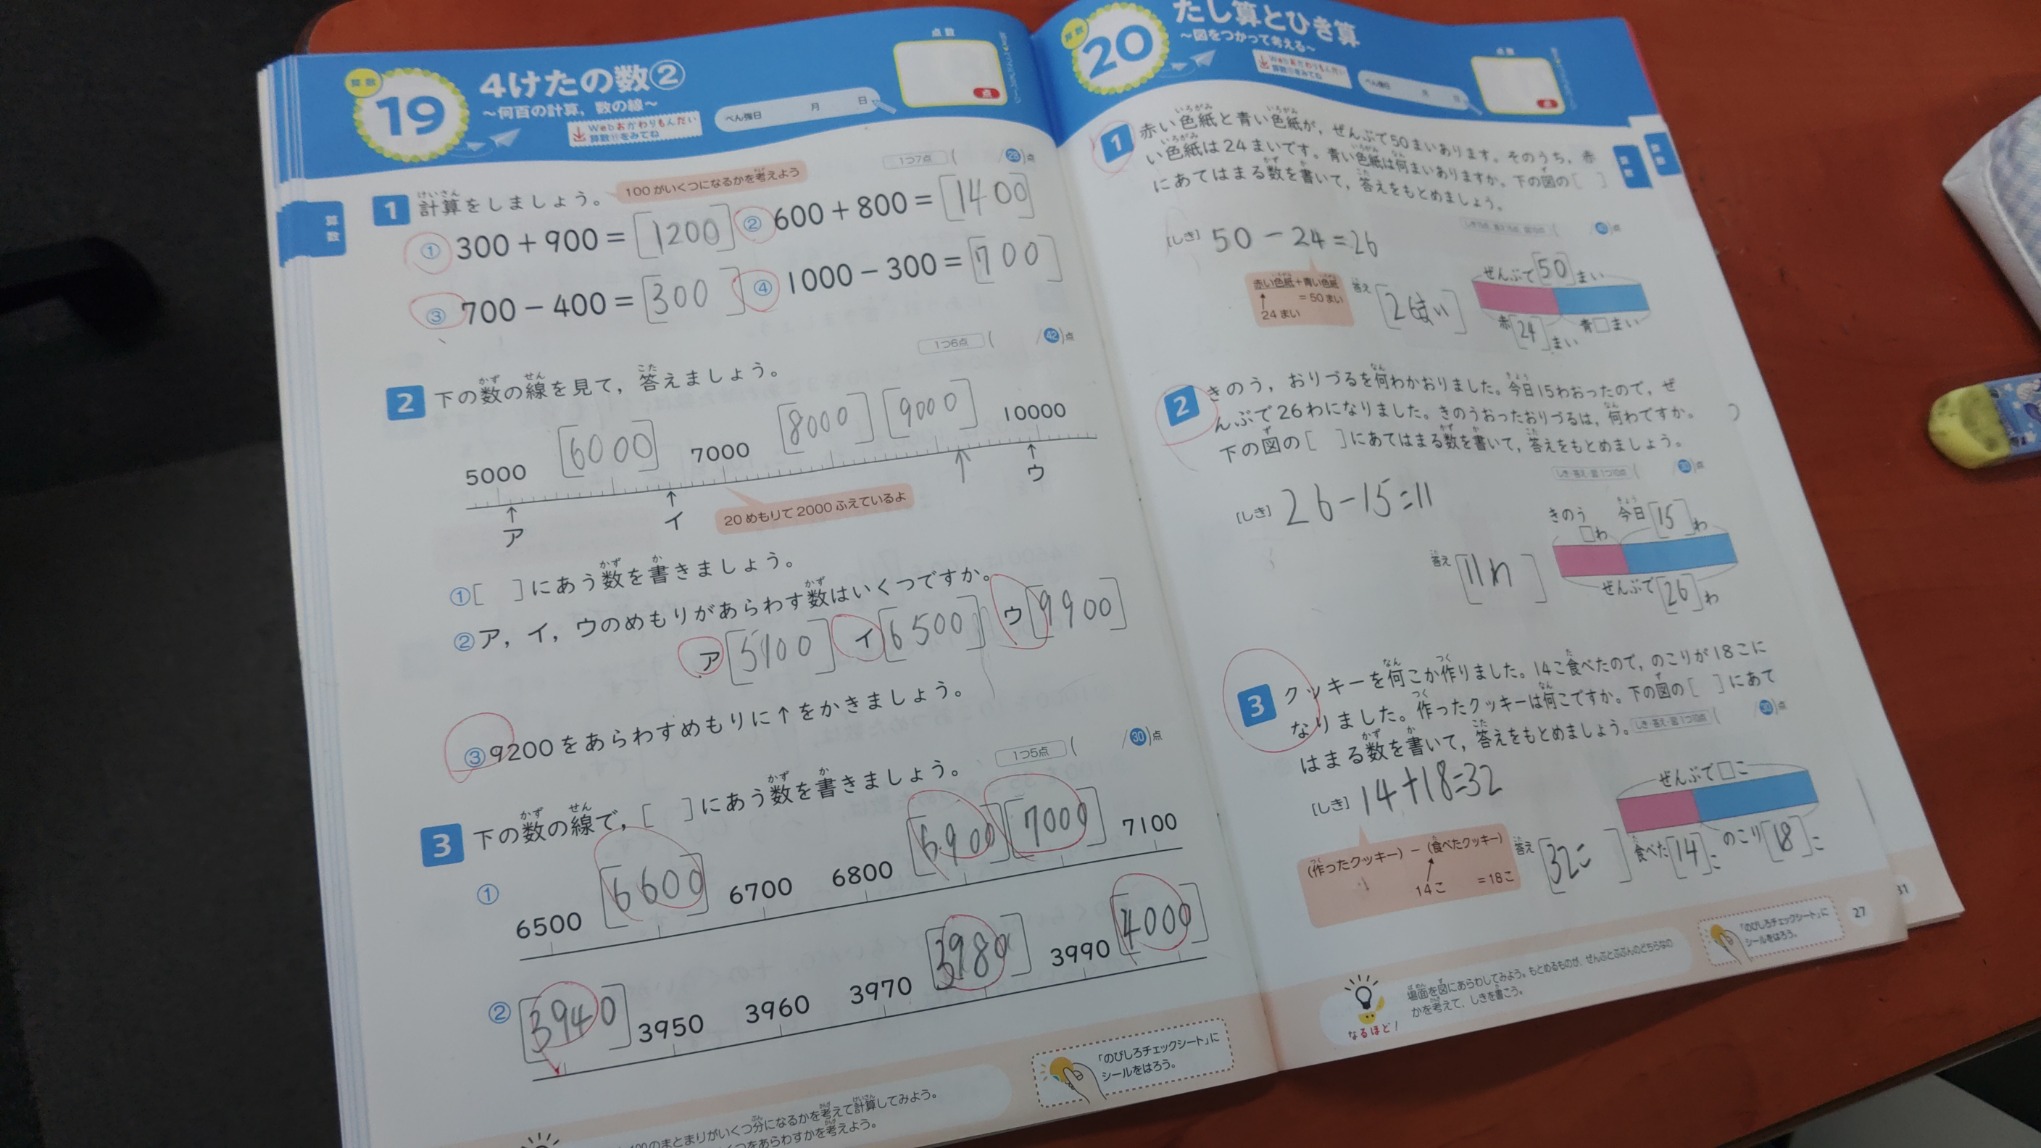 算数
19
4けたの数②
～何百の計算，数の線～
Webおかわりもんだい
算数⑪をみてね
べん強日 月 日
点数
点
算数
1 計算をしましょう。
100がいくつになるかを考えよう
1つ7点 ( /28)点
① 300+900=[1200] ② 600+800=[1400]
③ 700-400=[300] ④ 1000-300=[700]
2 下の数の線を見て，答えましょう。
1つ6点 ( /42)点
5000 [6000] 7000 [8000] [9000] 10000
ア イ ウ
20めもりで2000ふえているよ
①[ ]にあう数を書きましょう。
②ア，イ，ウのめもりがあらわす数はいくつですか。
ア[5100] イ[6500] ウ[9900]
③9200をあらわすめもりに↑をかきましょう。
3 下の数の線で，[ ]にあう数を書きましょう。
1つ5点 ( /30)点
① 6500 [6600] 6700 6800 [6900] [7000] 7100
② [3940] 3950 3960 3970 [3980] 3990 [4000]
100のまとまりがいくつ分になるかを考えて計算してみよう。
つをあらわすかを考えよう。
「のびしろチェックシート」に
シールをはろう。
算数
20
たし算とひき算
～図をつかって考える～
Webおかわりもんだい
べん強日 月 日
点数
点
算数
算数
1 赤い色紙と青い色紙が，ぜんぶで50まいあります。そのうち，赤
い色紙は24まいです。青い色紙は何まいありますか。下の図の[ ]
にあてはまる数を書いて，答えをもとめましょう。
[しき] 50-24=26
赤い色紙+青い色紙
=50まい
24まい
答え [26まい]
ぜんぶで[50]まい
赤[24]まい 青□まい
2 きのう，おりづるを何わかおりました。今日15わおったので，ぜ
んぶで26わになりました。きのうおったおりづるは，何わですか。
下の図の[ ]にあてはまる数を書いて，答えをもとめましょう。
[しき] 26-15=11
答え [11わ]
きのう □わ 今日[15]わ
ぜんぶで[26]わ
3 クッキーを何こか作りました。14こ食べたので，のこりが18こに
なりました。作ったクッキーは何こですか。下の図の[ ]にあて
はまる数を書いて，答えをもとめましょう。
[しき] 14+18=32
(作ったクッキー)-(食べたクッキー)
14こ =18こ
答え [32こ]
ぜんぶで□こ
食べた[14]こ のこり[18]こ
なるほど！
場面を図にあらわしてみよう。もとめるものが，ぜんぶとぶぶんのどちらなの
かを考えて，しきを書こう。
「のびしろチェックシート」に
シールをはろう。
27
31